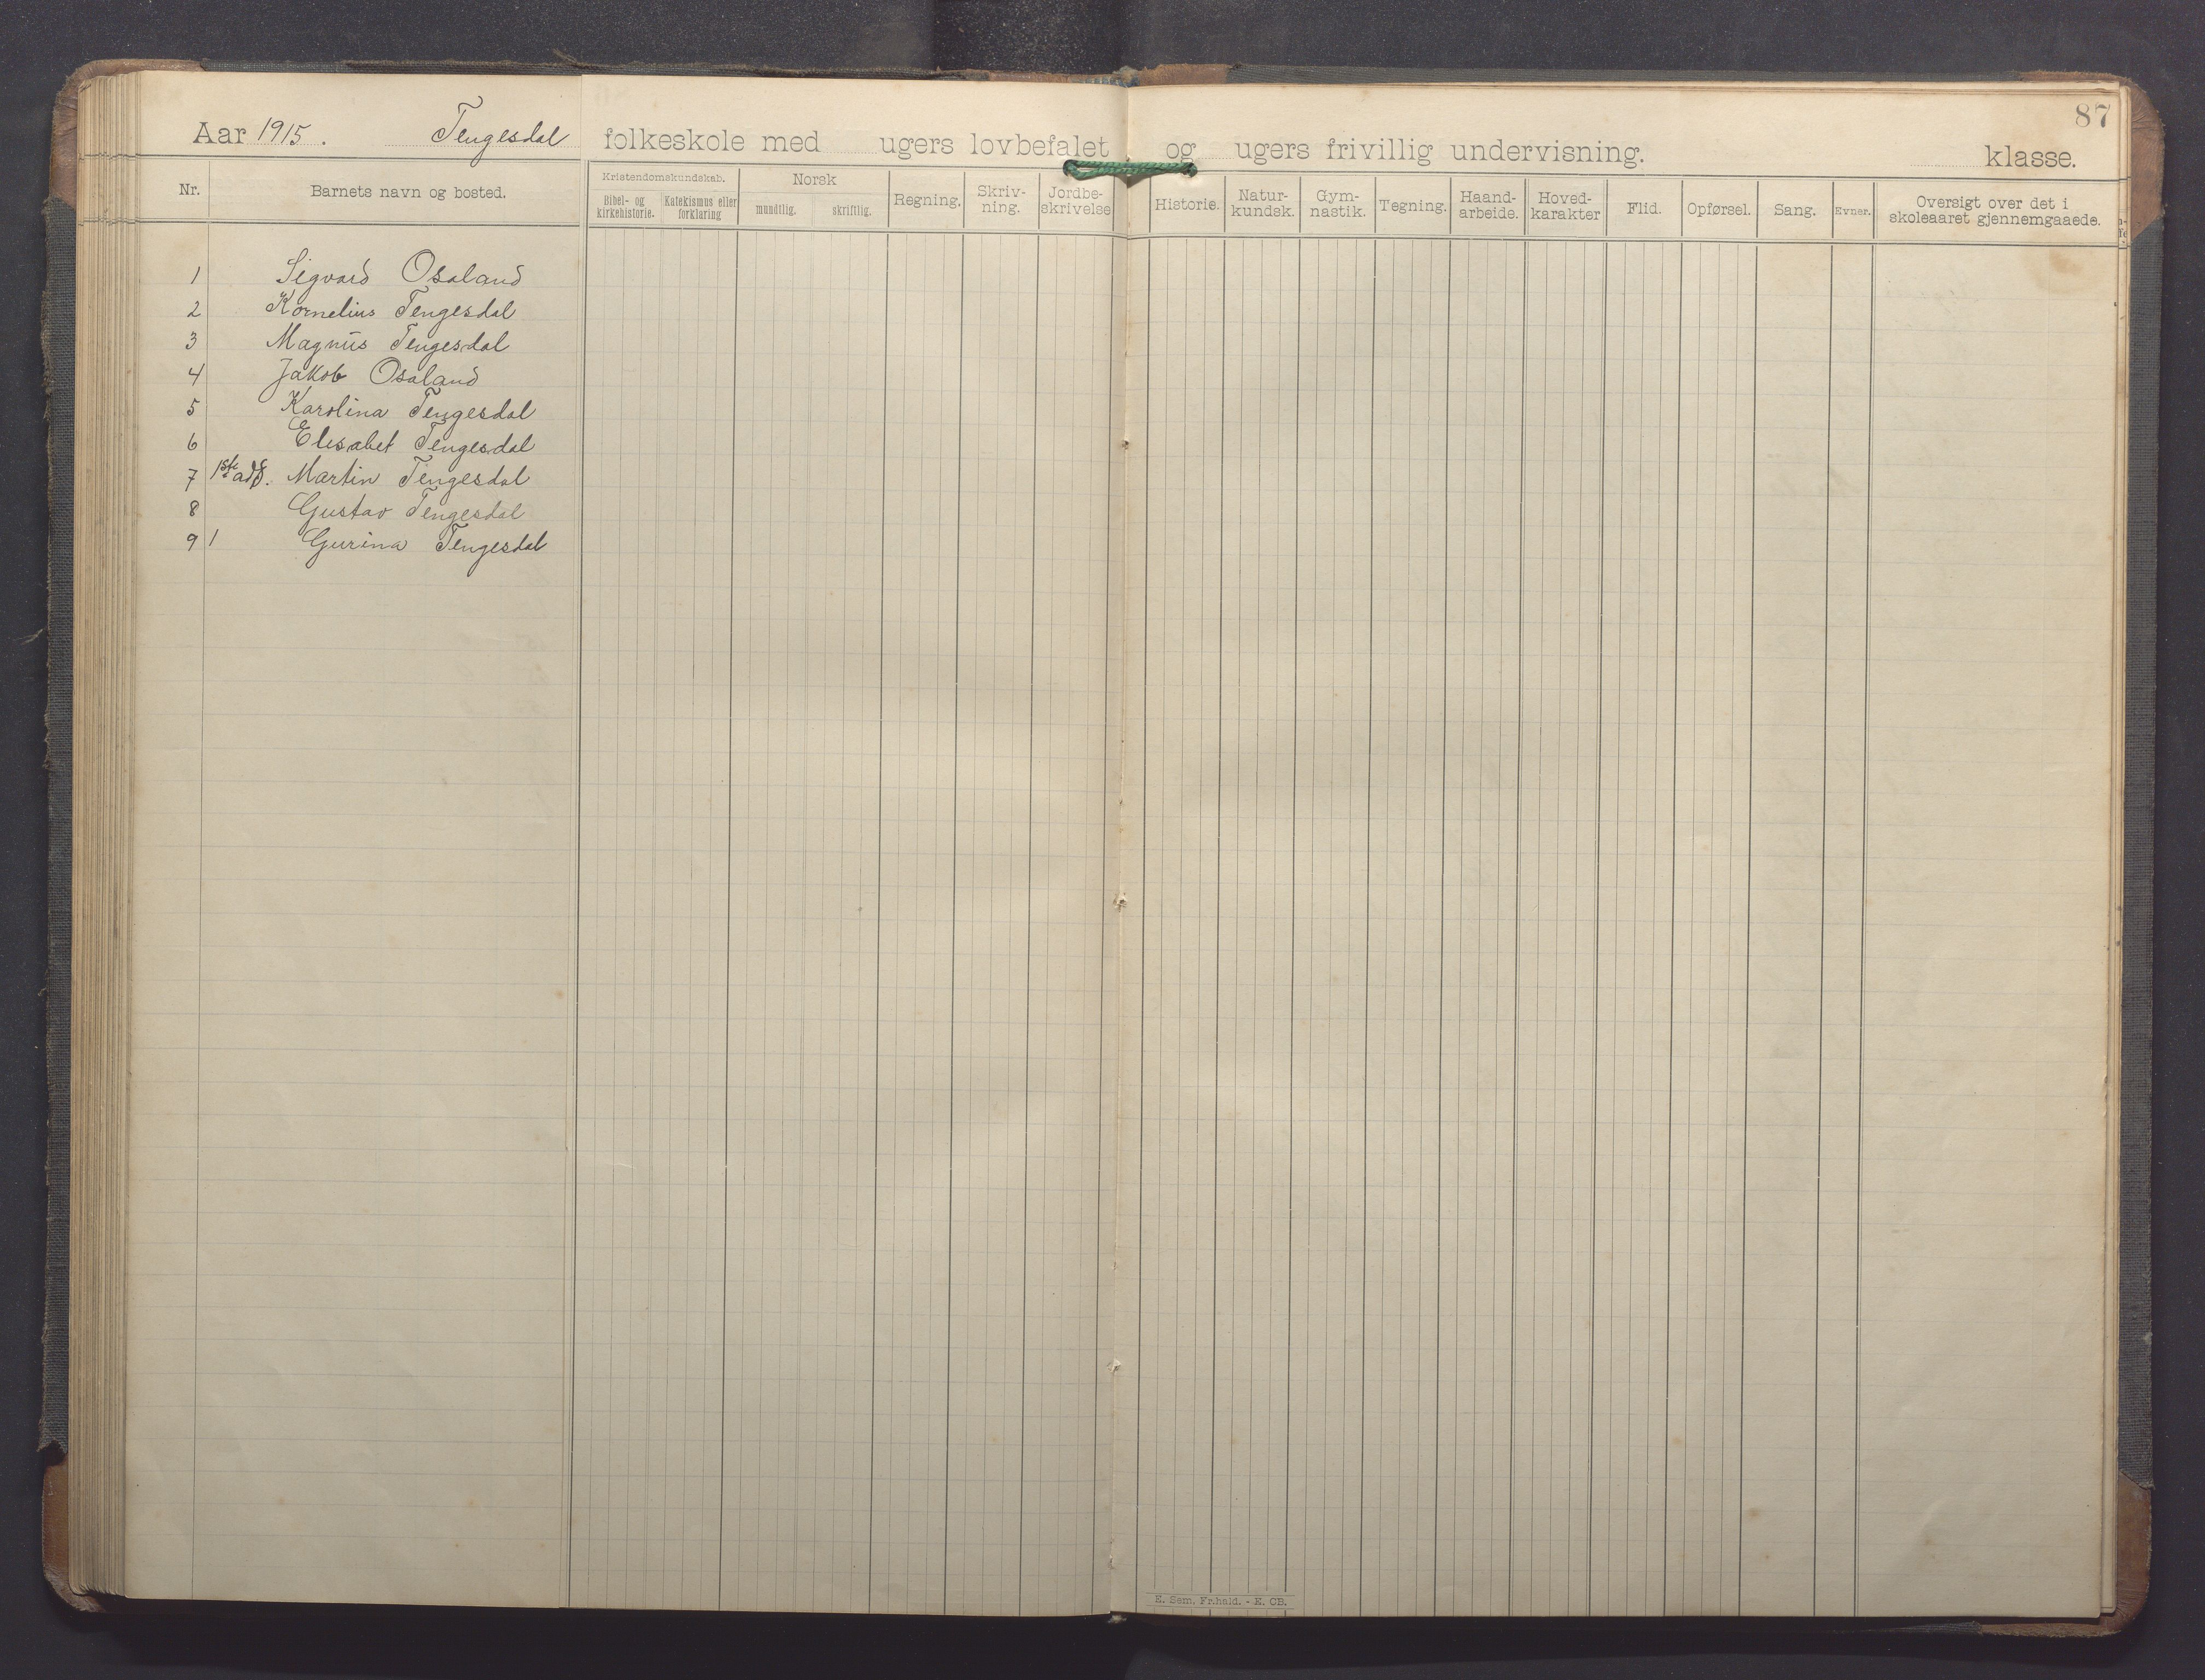 87
Aar 1915. Tengesdal folkeskole med ugers lovbefalet og ugers frivillig undervisning. klasse.
Nr. Barnets navn og bosted. Kristendomskundskab. Bibel- og kirkehistorie. Katekismus eller forklaring Norsk mundtlig. skriftlig. Regning. Skriv-ning. Jordbe-skrivelse Historie. Natur-kundsk. Gym-nastik. Tegning. Haand-arbeide. Hoved-karakter Flid. Opførsel. Sang. Evner. Oversigt over det i skoleaaret gjennemgaaede.
1 Sigvard Osaland
2 Kornelius Tengesdal
3 Magnus Tengesdal
4 Jakob Osaland
5 Karolina Tengesdal
6 Elisabet Tengesdal
7 1ste adf. Martin Tengesdal
8 Gustav Tengesdal
9 1 Gurina Tengesdal
E. Sem, Fr.hald. - E. CB.